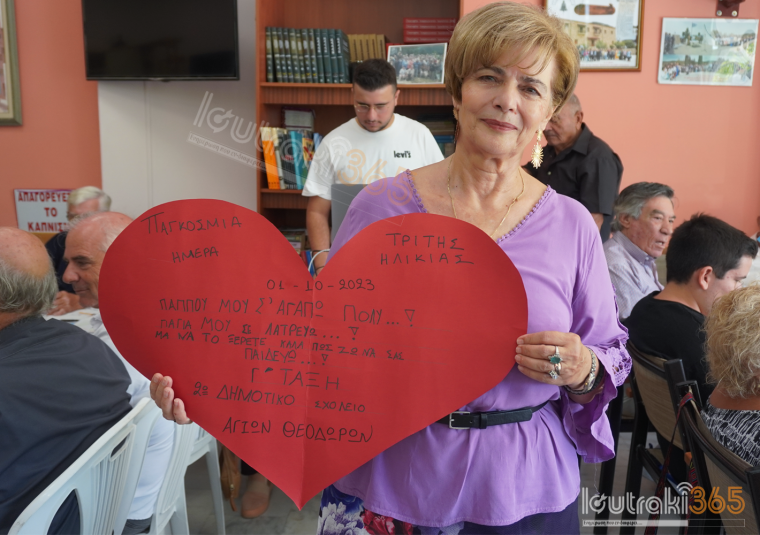 ΑΠΑΓΟΡΕΥΕΤ
ΤΟ
ΚΑΠΝΙΣ
Levi's
ΠΑΓΚΟΣΜΙΑ
ΗΜΕΡΑ
ΤΡΙΤΗΣ
ΗΛΙΚΙΑΣ
01-10-2023
ΠΑΠΠΟΥ ΜΟΥ Σ'ΑΓΑΠΩ ΠΟΛΥ...!
ΓΙΑΓΙΑ ΜΟΥ ΣΕ ΛΑΤΡΕΥΩ...!
ΜΑ ΝΑ ΤΟ ΞΕΡΕΤΕ ΚΑΛΑ ΠΩΣ ΖΩ ΝΑ ΣΑΣ
ΠΑΙΔΕΥΩ...!
Γ' ΤΑΞΗ
2ο ΔΗΜΟΤΙΚΟ ΣΧΟΛΕΙΟ
ΑΓΙΩΝ ΘΕΟΔΩΡΩΝ
loutraki365
loutraki365